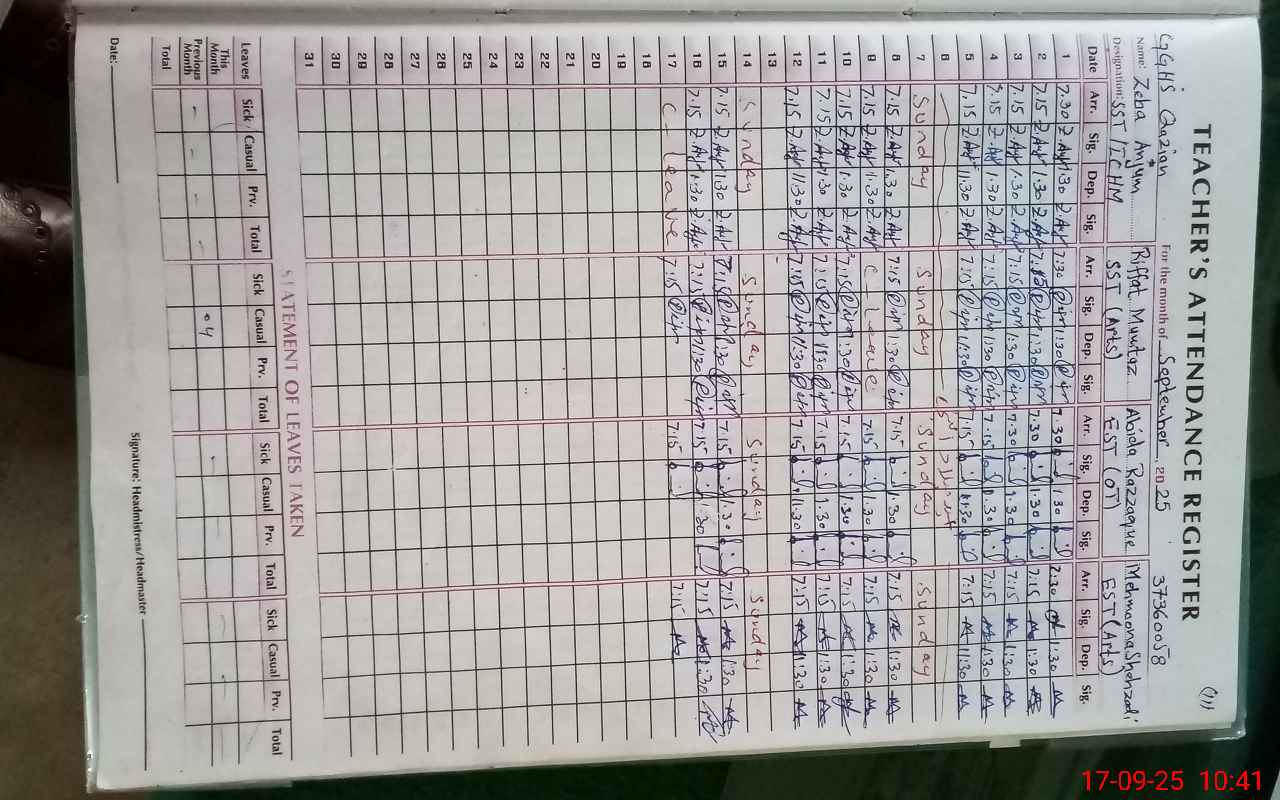 TEACHER'S ATTENDANCE REGISTER
(11)
GGHS Qazian For the month of September 2025 37360058
Name: Zeba Anjum Riffat Mumtaz Abida Razzaque Mehmoona Shahzadi
Designation: SST/ICHM SST (Arts) EST (OT) EST (Arts)
Date Arr. Sig. Dep. Sig. Arr. Sig. Dep. Sig. Arr. Sig. Dep. Sig. Arr. Sig. Dep. Sig.
1 7.30 1:30 7:30 1:30 7.30 1:30 7:30 1:30
2 7.15 1:30 7:15 1:30 7.30 1:30 7:15 1:30
3 7.15 1:30 7:15 1:30 7.30 1:30 7:15 1:30
4 7.15 1:30 7:15 1:30 7.15 1:30 7:15 1:30
5 7.15 11:30 7:15 11:30 7:15 11:30 7:15 11:30
6
7 Sunday Sunday Sunday Sunday
8 7.15 1:30 7:15 1:30 7:15 1:30 7:15 1:30
9 7.15 1:30 C-Leave 7:15 1:30 7:15 1:30
10 7.15 1:30 7:15 1:30 7.15 1:30 7:15 1:30
11 7.15 1:30 7:15 1:30 7.15 1:30 7:15 1:30
12 7.15 11:30 7:15 11:30 7.15 11:30 7:15 11:30
13
14 Sunday Sunday Sunday Sunday
15 7.15 1:30 7:15 1:30 7.15 1:30 7:15 1:30
16 7.15 1:30 7:15 1:30 7:15 1:30 7:15 1:30
17 C-Leave 7:15 7:15 7:15
18
19
20
21
22
23
24
25
26
27
28
29
30
31
STATEMENT OF LEAVES TAKEN
Leaves Sick Casual Prv. Total Sick Casual Prv. Total Sick Casual Prv. Total Sick Casual Prv. Total
This Month
Previous Month - - - - 04
Total
Date: Signature: Headmistress/Headmaster
17-09-25 10:41